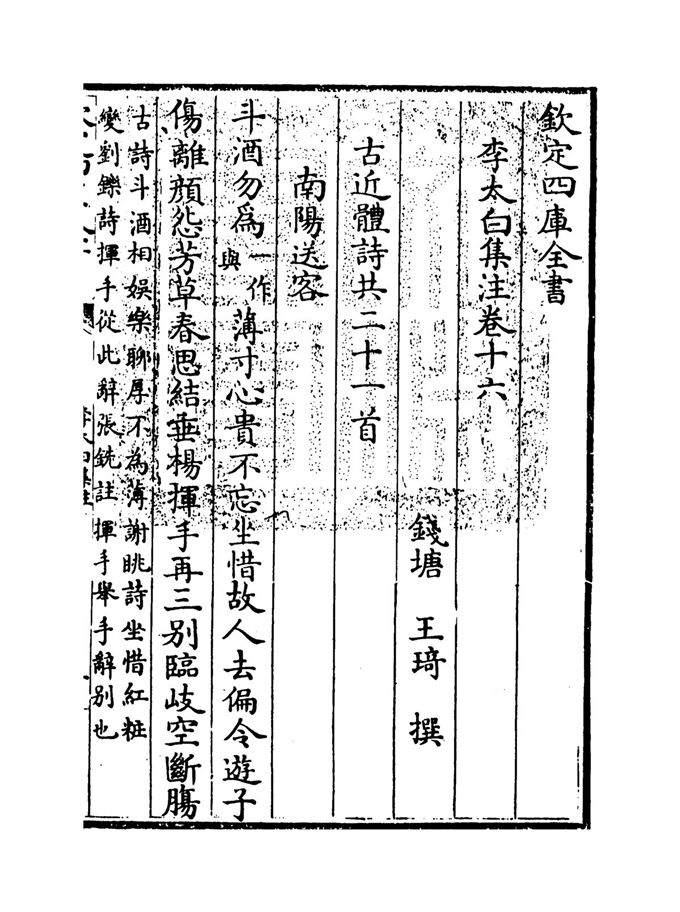 欽定四庫全書
李太白集注卷十六
錢塘 王琦 撰
古近體詩共二十一首
南陽送客
斗酒勿爲一作與薄寸心貴不忘坐惜故人去偏令遊子
傷離顔怨芳草春思結垂楊揮手再三别臨岐空斷膓
古詩斗酒相娛樂聊厚不為薄謝眺詩坐惜紅粧
變劉鑠詩揮手從此辭張銑註揮手舉手辭别也